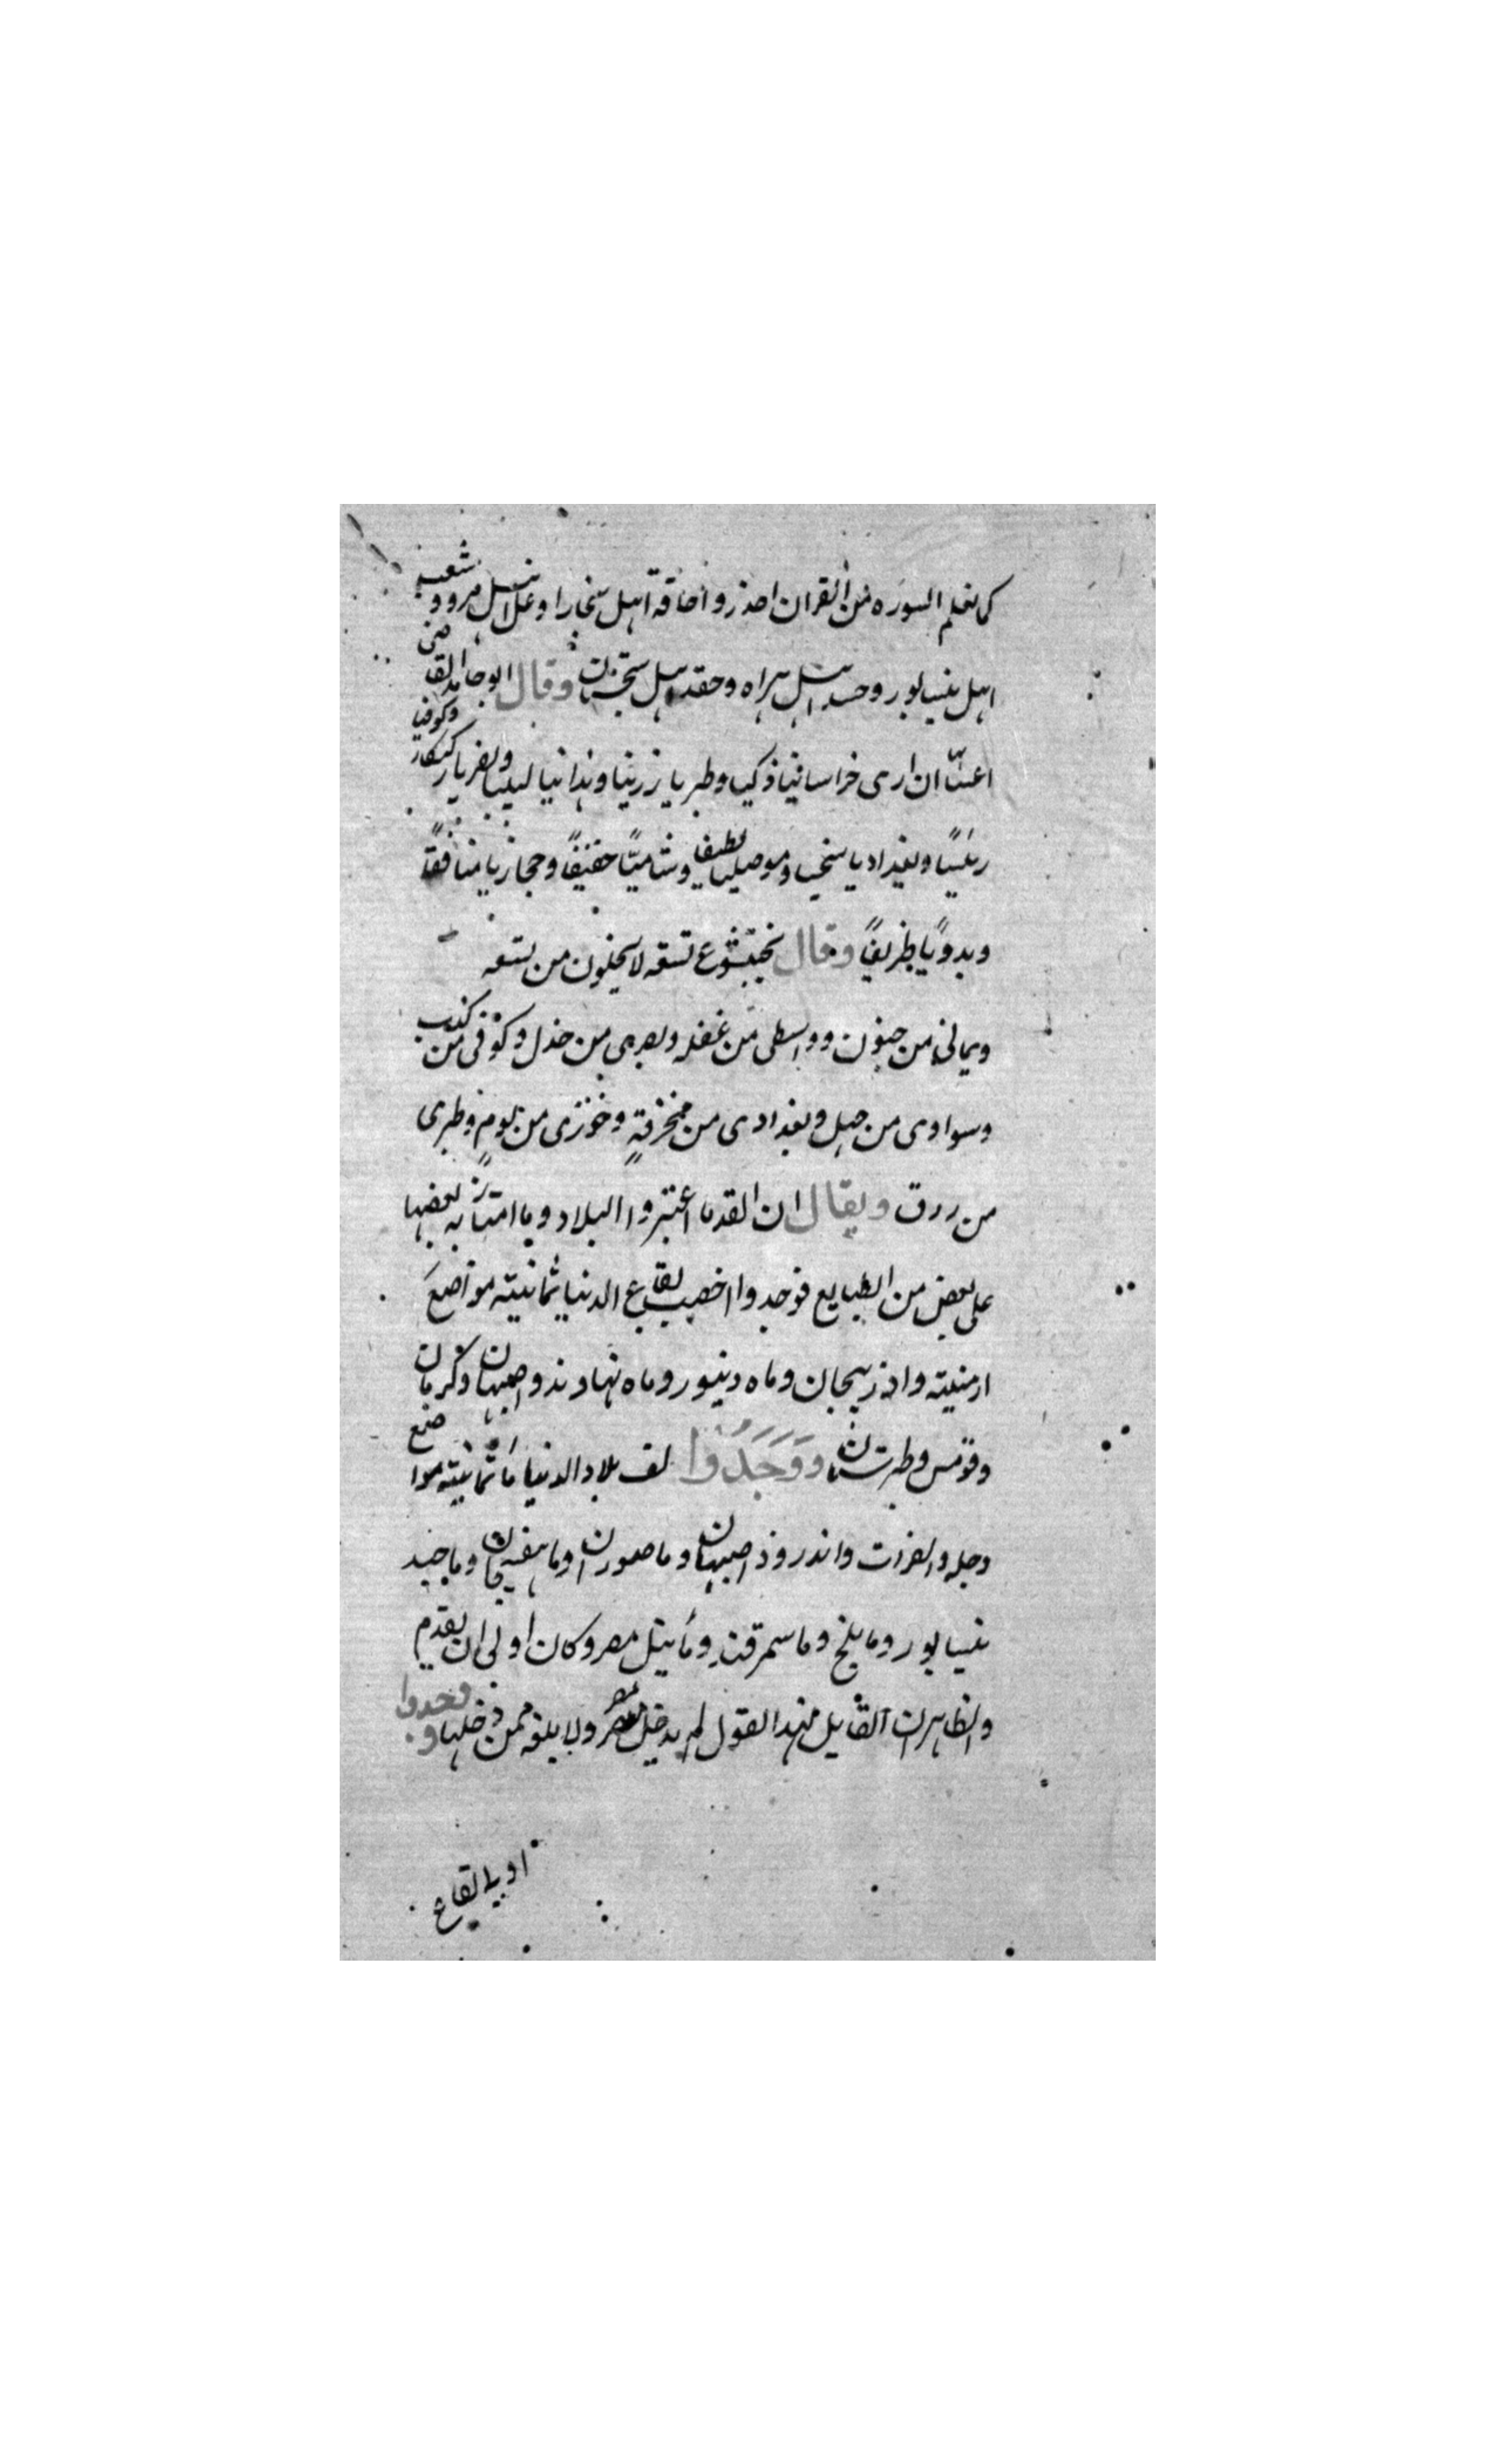 كما نعلم السوره من القران احذروا حماقة اهل بخارا وغل اهل مرو وشعب
اهل نيسابور وحسد اهل هراه وحقد اهل سجستان وقال ابو حامد القاضى
اعيانا ان ارى خراسانيا ذكيا وطبريا رزينا وهمدانيا لبيبا وبصريا ركيكا وكوفيا
رئيسا وبغداديا سخيا وموصليا لطيفا وشاميا خفيفا وحجازيا منافقا
وبدويا ظريفا وقال بختيشوع تسعه لا يخلون من تسعه
ويمانى من جنون وواسطى من غفله وبصرى من خذل وكوفى من كذب
وسوادى من جهل وبغدادى من مخرقة وخوزى من لوم وطبرى
من زرق ويقال ان القدما اعتبروا البلاد وما امتاز به بعضها
على بعض من الطبايع فوجدوا اخصب بقاع الدنيا ثمانية مواضع
ارمنية واذربيجان وماه دينور وماه نهاوند واصبهان وكرمان
وقومس وطبرستان ووجدوا اخف بلاد الدنيا ما ثمانية مواضع
دجله والفرات واندروذ اصبهان وما صوران وما وما جند
نيسابور وما بلخ وما سمرقند وما نيل مصر وكان اولى ان يقدم
والظاهر ان القايل بهذا القول لم يدخل مصر ولا بلغه ممن دخلها ووجدوا
اوبا بقاع